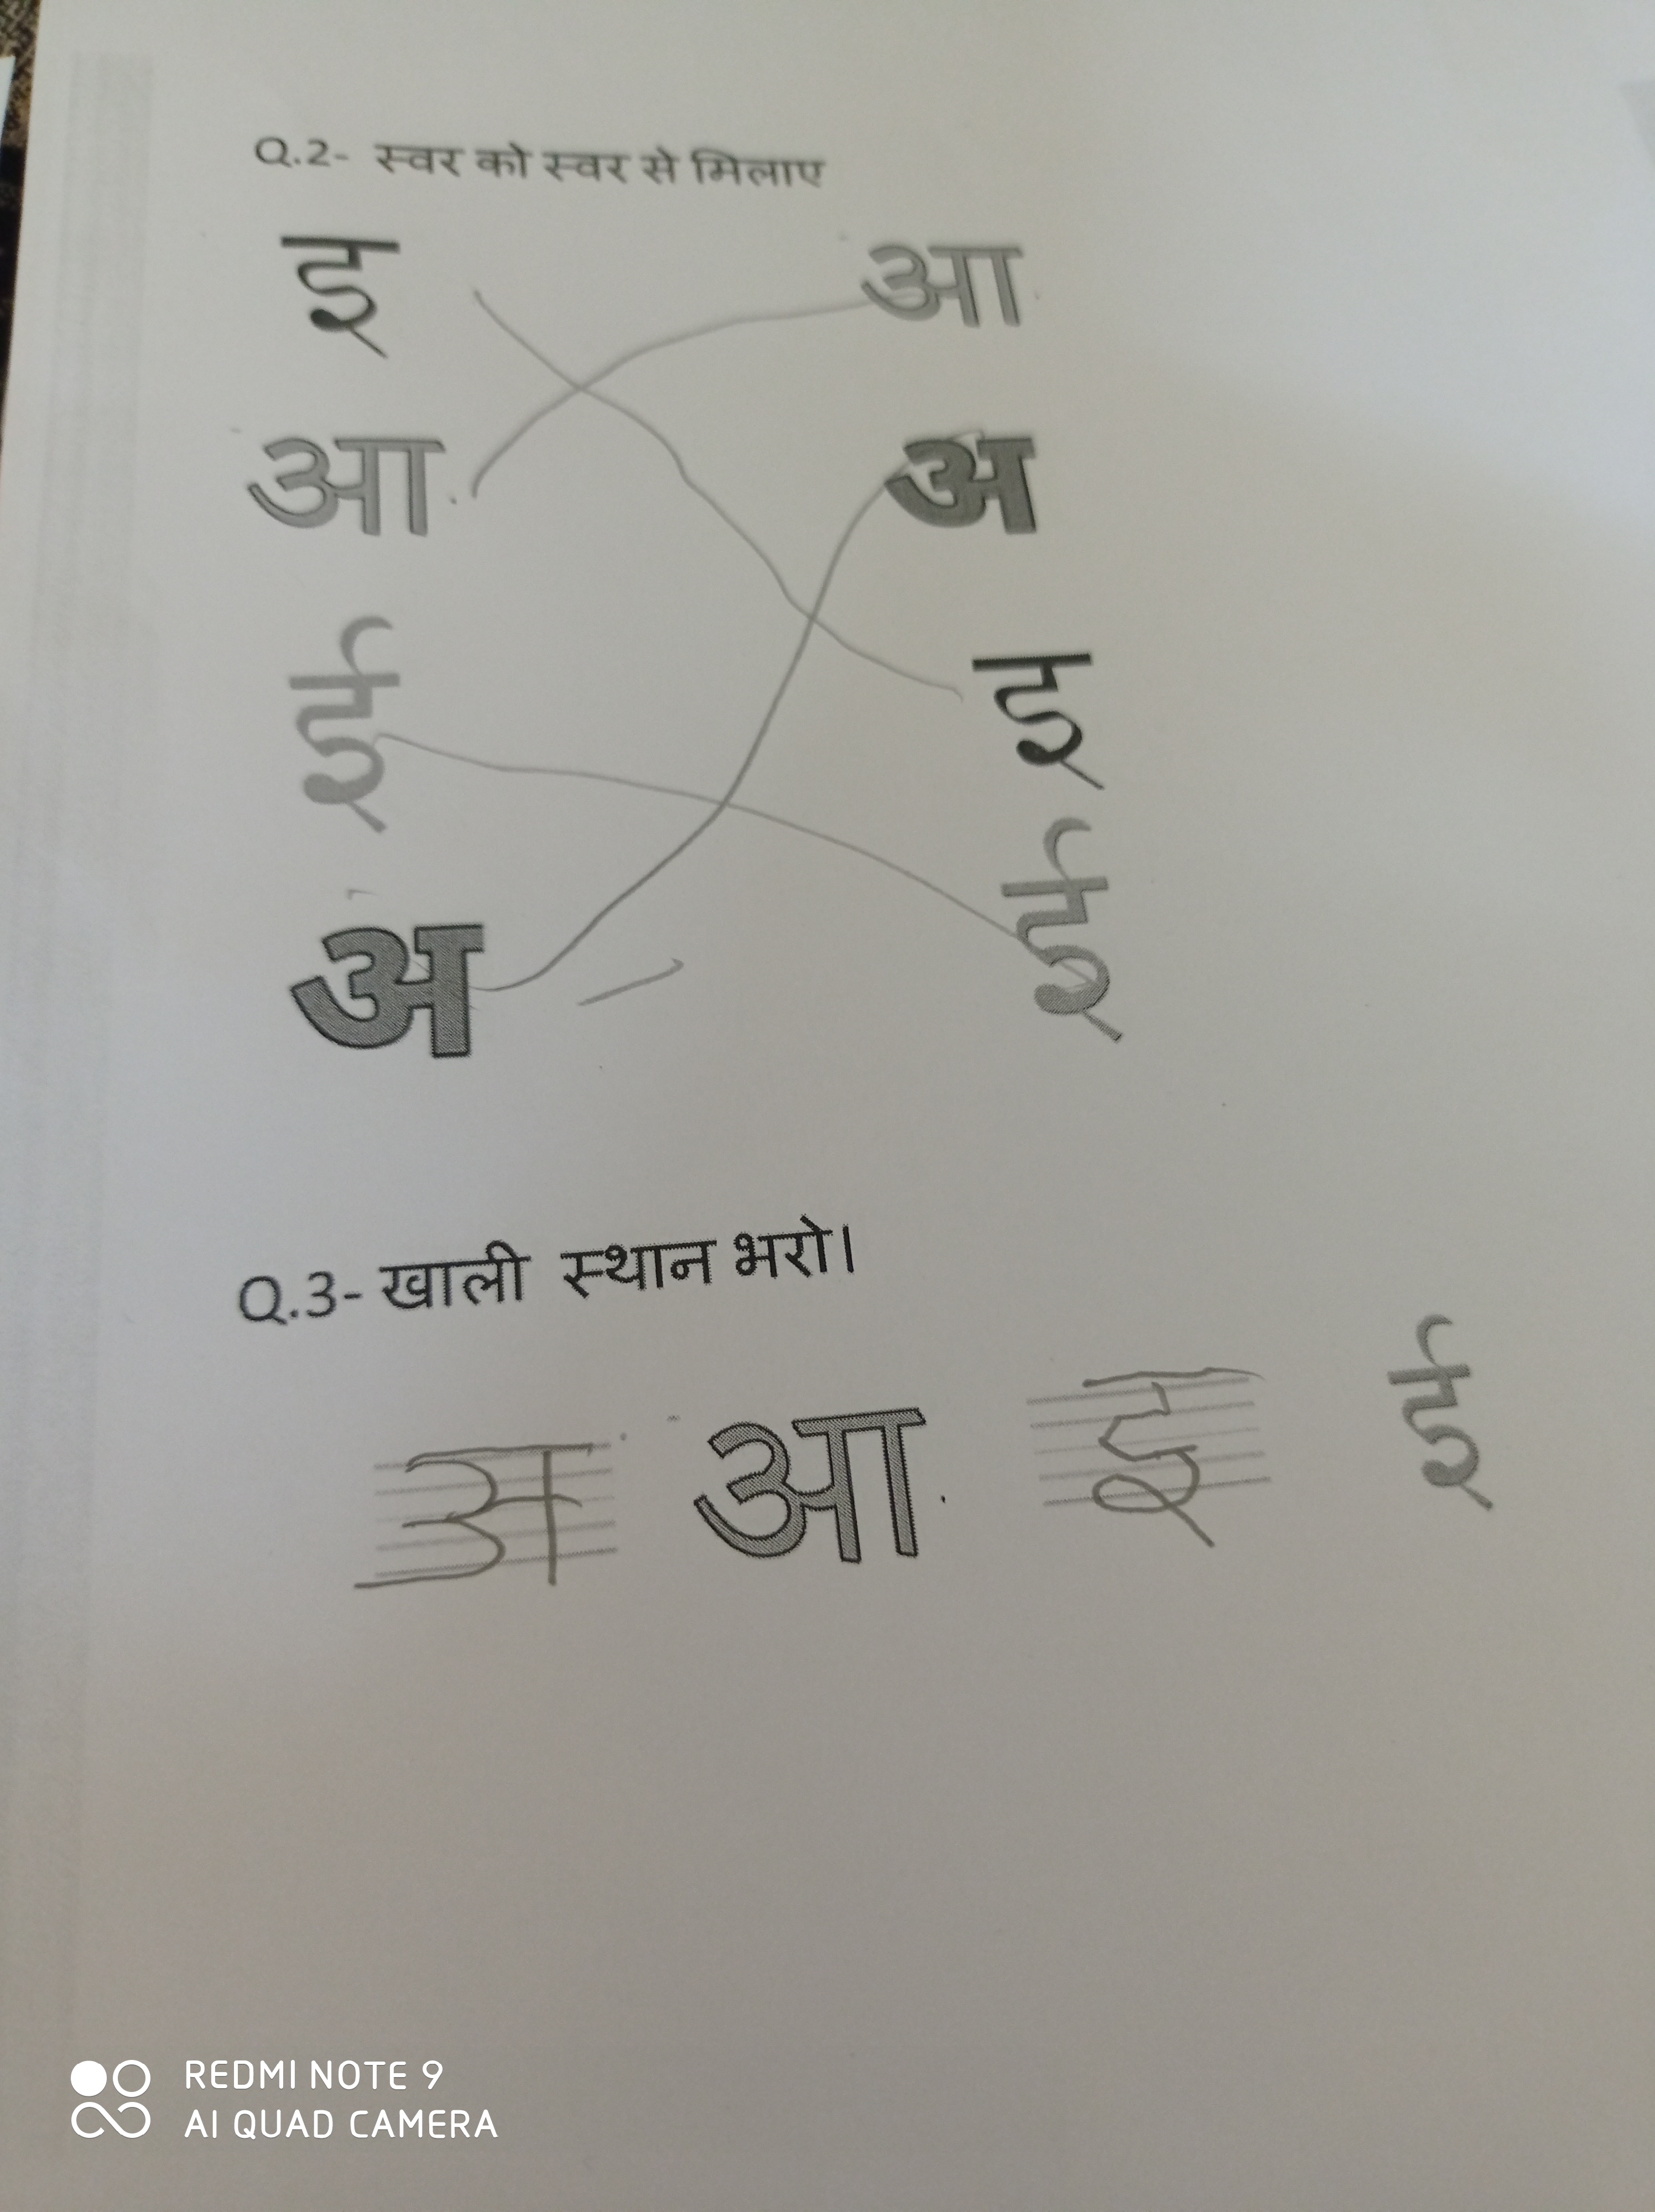 Q.2- स्वर को स्वर से मिलाए
इ आ
आ अ
ई इ
अ ई
Q.3- खाली स्थान भरो।
अ आ इ ई
REDMI NOTE 9
AI QUAD CAMERA